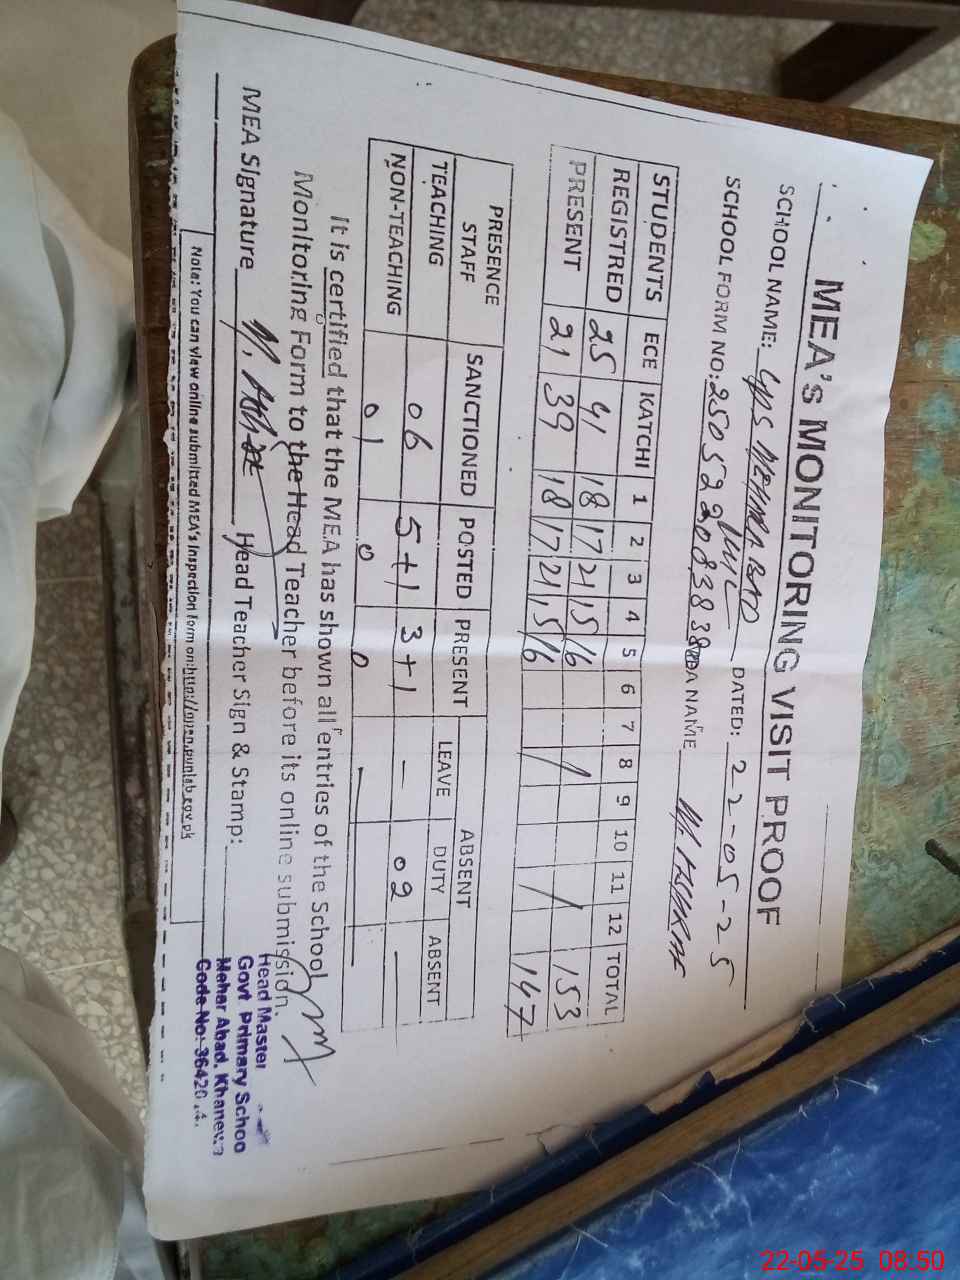 MEA's MONITORING VISIT PROOF
SCHOOL NAME: GPS MEHAR ABAD DATED: 22-05-25
SCHOOL FORM NO: NAME M. ASHRAF
STUDENTS ECE KATCHI 1 2 3 4 5 6 7 8 9 10 11 12 TOTAL
REGISTRED 25 41 18 17 21 15 16 153
PRESENT 21 39 18 17 21 15 16 147
PRESENCE STAFF SANCTIONED POSTED PRESENT ABSENT
LEAVE DUTY ABSENT
TEACHING 06 5+1 3+1 - 02 -
NON-TEACHING 01 0 0
It is certified that the MEA has shown all entries of the School
Monitoring Form to the Head Teacher before its online submission.
MEA Signature M. Head Teacher Sign & Stamp:
Head Master
Govt Primary Schoo
Mehar Abad, Khanewa
Code No: 36420
Note: You can view online submitted MEA's Inspection form on: http://open.punjab.gov.pk
22-05-25 08:50